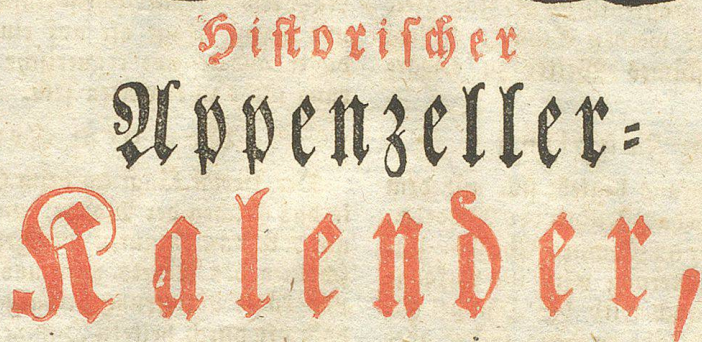 Historischer
Appenzeller-
Kalender,